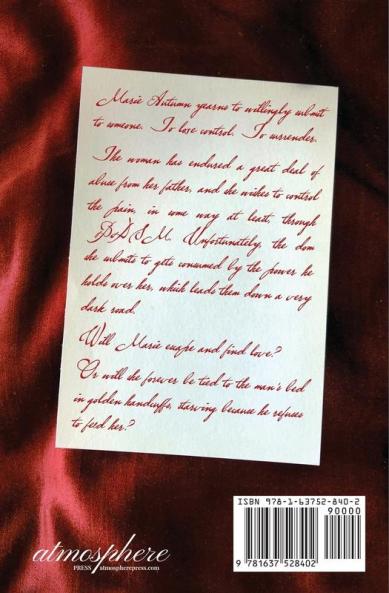 Marie Autumn yearns to willingly submit
to someone. To lose control. To surrender.
The woman has endured a great deal of
abuse from her father, and she wishes to control
the pain, in some way at least, through
BDSM. Unfortunately, the dom
she submits to gets consumed by the power he
holds over her, which leads them down a very
dark road.
Will Marie escape and find love?
Or will she forever be tied to the man's bed
in golden handcuffs, starving because he refuses
to feed her?
ISBN 978-1-63752-840-2
90000
9 781637 528402
atmosphere
PRESS atmospherepress.com